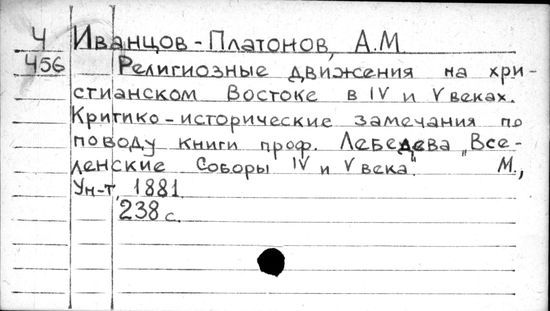 Ч Иванцов-Платонов, А.М
456 Религиозные движения на хри-
стианском Востоке в IV и V веках.
Критико-исторические замечания по
поводу книги проф. Лебедева „Все-
ленские Соборы IV и V века." М.,
Ун-т, 1881.
238 с.